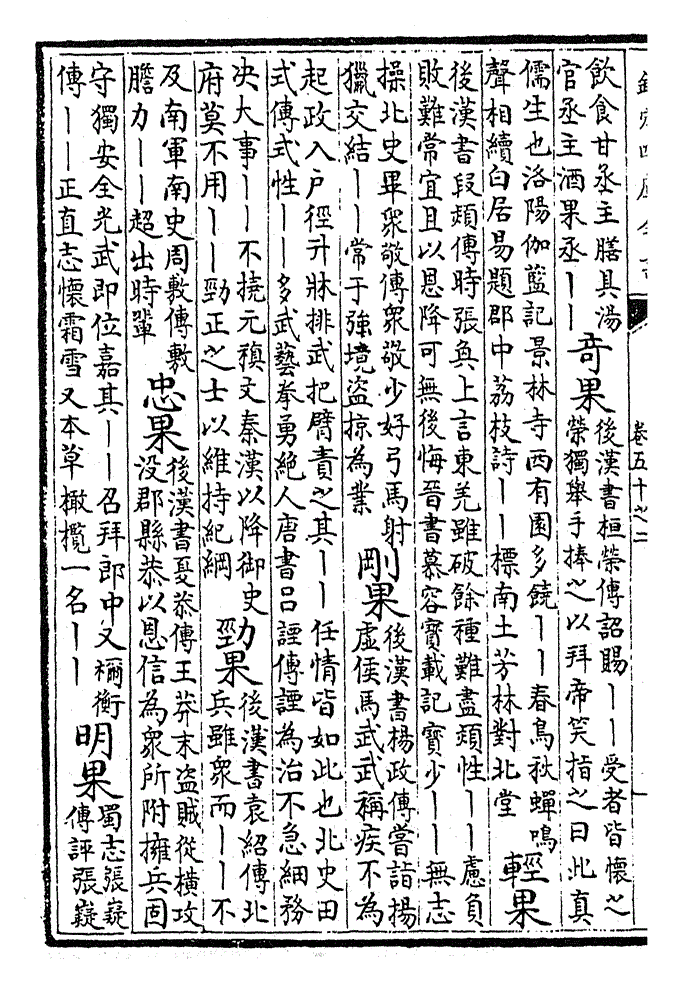 卷五十之二
飲食甘丞主膳具湯
官丞主酒果丞丨丨
奇果
後漢書桓榮傳詔賜丨丨受者皆懷之
榮獨舉手捧之以拜帝笑指之曰此真
儒生也洛陽伽藍記景林寺西有園多饒丨丨春鳥秋蟬鳴
聲相續白居易題郡中荔枝詩丨丨標南土芳林對北堂
輕果
後漢書段熲傳時張奐上言東羌雖破餘種難盡熲性丨丨慮負
敗難常宜且以恩降可無後悔晉書慕容寶載記寶少丨丨無志
操北史畢衆敬傳衆敬少好弓馬射
獵交結丨丨常于強境盜掠為業
剛果
後漢書楊政傳嘗詣揚
虛侯馬武武稱疾不為
起政入户徑升牀排武把臂責之其丨丨任情皆如此也北史田
式傳式性丨丨多武藝拳勇絕人唐書吕諲傳諲為治不急細務
决大事丨丨不撓元稹文秦漢以降御史
府莫不用丨丨勁正之士以維持紀綱
勁果
後漢書袁紹傳北
兵雖衆而丨丨不
及南軍南史周敷傳敷
膽力丨丨超出時輩
忠果
後漢書憂恭傳王莽末盜賊從横攻
没郡縣恭以恩信為衆所附擁兵固
守獨安全光武即位嘉其丨丨召拜郎中又禰衡
傳丨丨正直志懷霜雪又本草橄欖一名丨丨
明果
蜀志張嶷
傳評張嶷